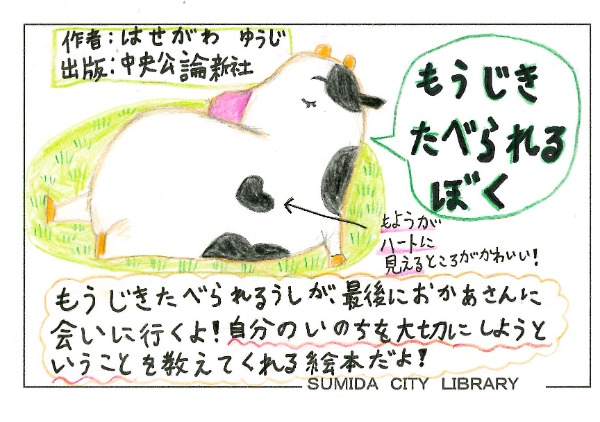 作者：はせがわ ゆうじ
出版：中央公論新社
もうじき
たべられる
ぼく
もようが
ハートに
見えるところがかわいい！
もうじきたべられるうしが、最後におかあさんに
会いに行くよ！自分のいのちを大切にしようと
いうことを教えてくれる絵本だよ！
SUMIDA CITY LIBRARY